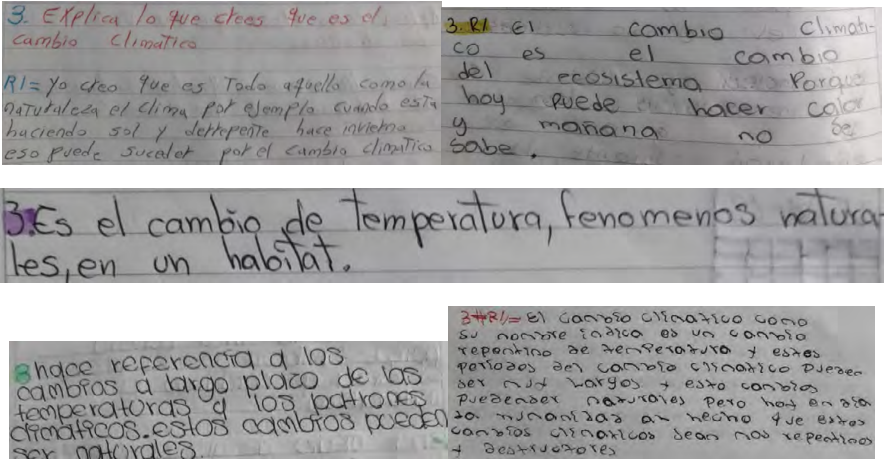 3. Explica lo que crees que es el
cambio climatico
R1= Yo creo que es Todo aquello como la
naturaleza el clima por ejemplo cuando esta
haciendo sol y derrepente hace invierno
eso puede suceder por el cambio climatico
3. R1 El cambio climati-
co es el cambio
del ecosistema Porque
hoy puede hacer calor
y mañana no se
sabe.
3. Es el cambio de temperatura, fenomenos natura-
les, en un habitat.
3 hace referencia a los
cambios a largo placo de las
temperatoras y los patrones
climaticos. estos cambios pueden
ser naturales.
3#R1= El cambio climatico como
su nombre indica es un cambio
repentino de temperatura y estos
periodos del cambio climatico pueden
ser muy largos y esto cambios
puedenser naturales pero hoy en dia
la humanidad an hecho que estos
cambios climaticos sean mas repentinos
y destructores